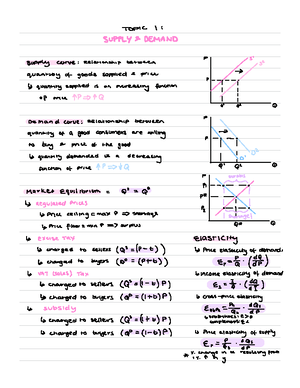 TOPIC 1:
SUPPLY & DEMAND
Supply curve: Relationship between
quantity of goods supplied & price
↳ quantity supplied is an increasing function
of price ↑P ⇒ ↑Q
Demand curve: Relationship between
quantity of a good consumers are willing
to buy & price of the good
↳ quantity demanded is a decreasing
function of price ↑P ⇒ ↓Q
Market Equilibrium = Qˢ = Qᴰ
↳ regulated prices
↳ Price ceiling = max P ⇒ shortage
↳ Price floor = min P ⇒ surplus
↳ excise tax
↳ charged to sellers (Qˢ = (P-t))
↳ charged to buyers (Qᴰ = (P+t))
↳ VAT (sales) tax
↳ charged to sellers (Qˢ = (1-t)P)
↳ charged to buyers (Qᴰ = (1+t)P)
↳ subsidy
↳ charged to sellers (Qˢ = (1+t)P)
↳ charged to buyers (Qᴰ = (1-t)P)
P
Q
P
Q
surplus
P
shortage
Q
Elasticity
↳ Price elasticity of demand
↳ Income elasticity of demand
↳ Cross-price elasticity
↳ Price elasticity of supply